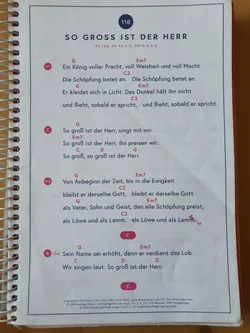 116
SO GROSS IST DER HERR
G Em7
V1 Ein König voller Pracht, voll Weisheit und voll Macht.
C2
Die Schöpfung betet an. Die Schöpfung betet an.
G Em7
Er kleidet sich in Licht. Das Dunkel hält ihn nicht
C2
und flieht, sobald er spricht, und flieht, sobald er spricht.
G
C So groß ist der Herr, singt mit mir.
Em7
So groß ist der Herr, ihn preisen wir.
C D G
So groß, so groß ist der Herr.
G Em7
V2 Von Anbeginn der Zeit, bis in die Ewigkeit
C2
bleibt er derselbe Gott, bleibt er derselbe Gott
G Em7
als Vater, Sohn und Geist, den alle Schöpfung preist,
C2
als Löwe und als Lamm, als Löwe und als Lamm.
C
G Em7
B Sein Name sei erhöht, denn er verdient das Lob.
C D G
Wir singen laut: So groß ist der Herr.
C